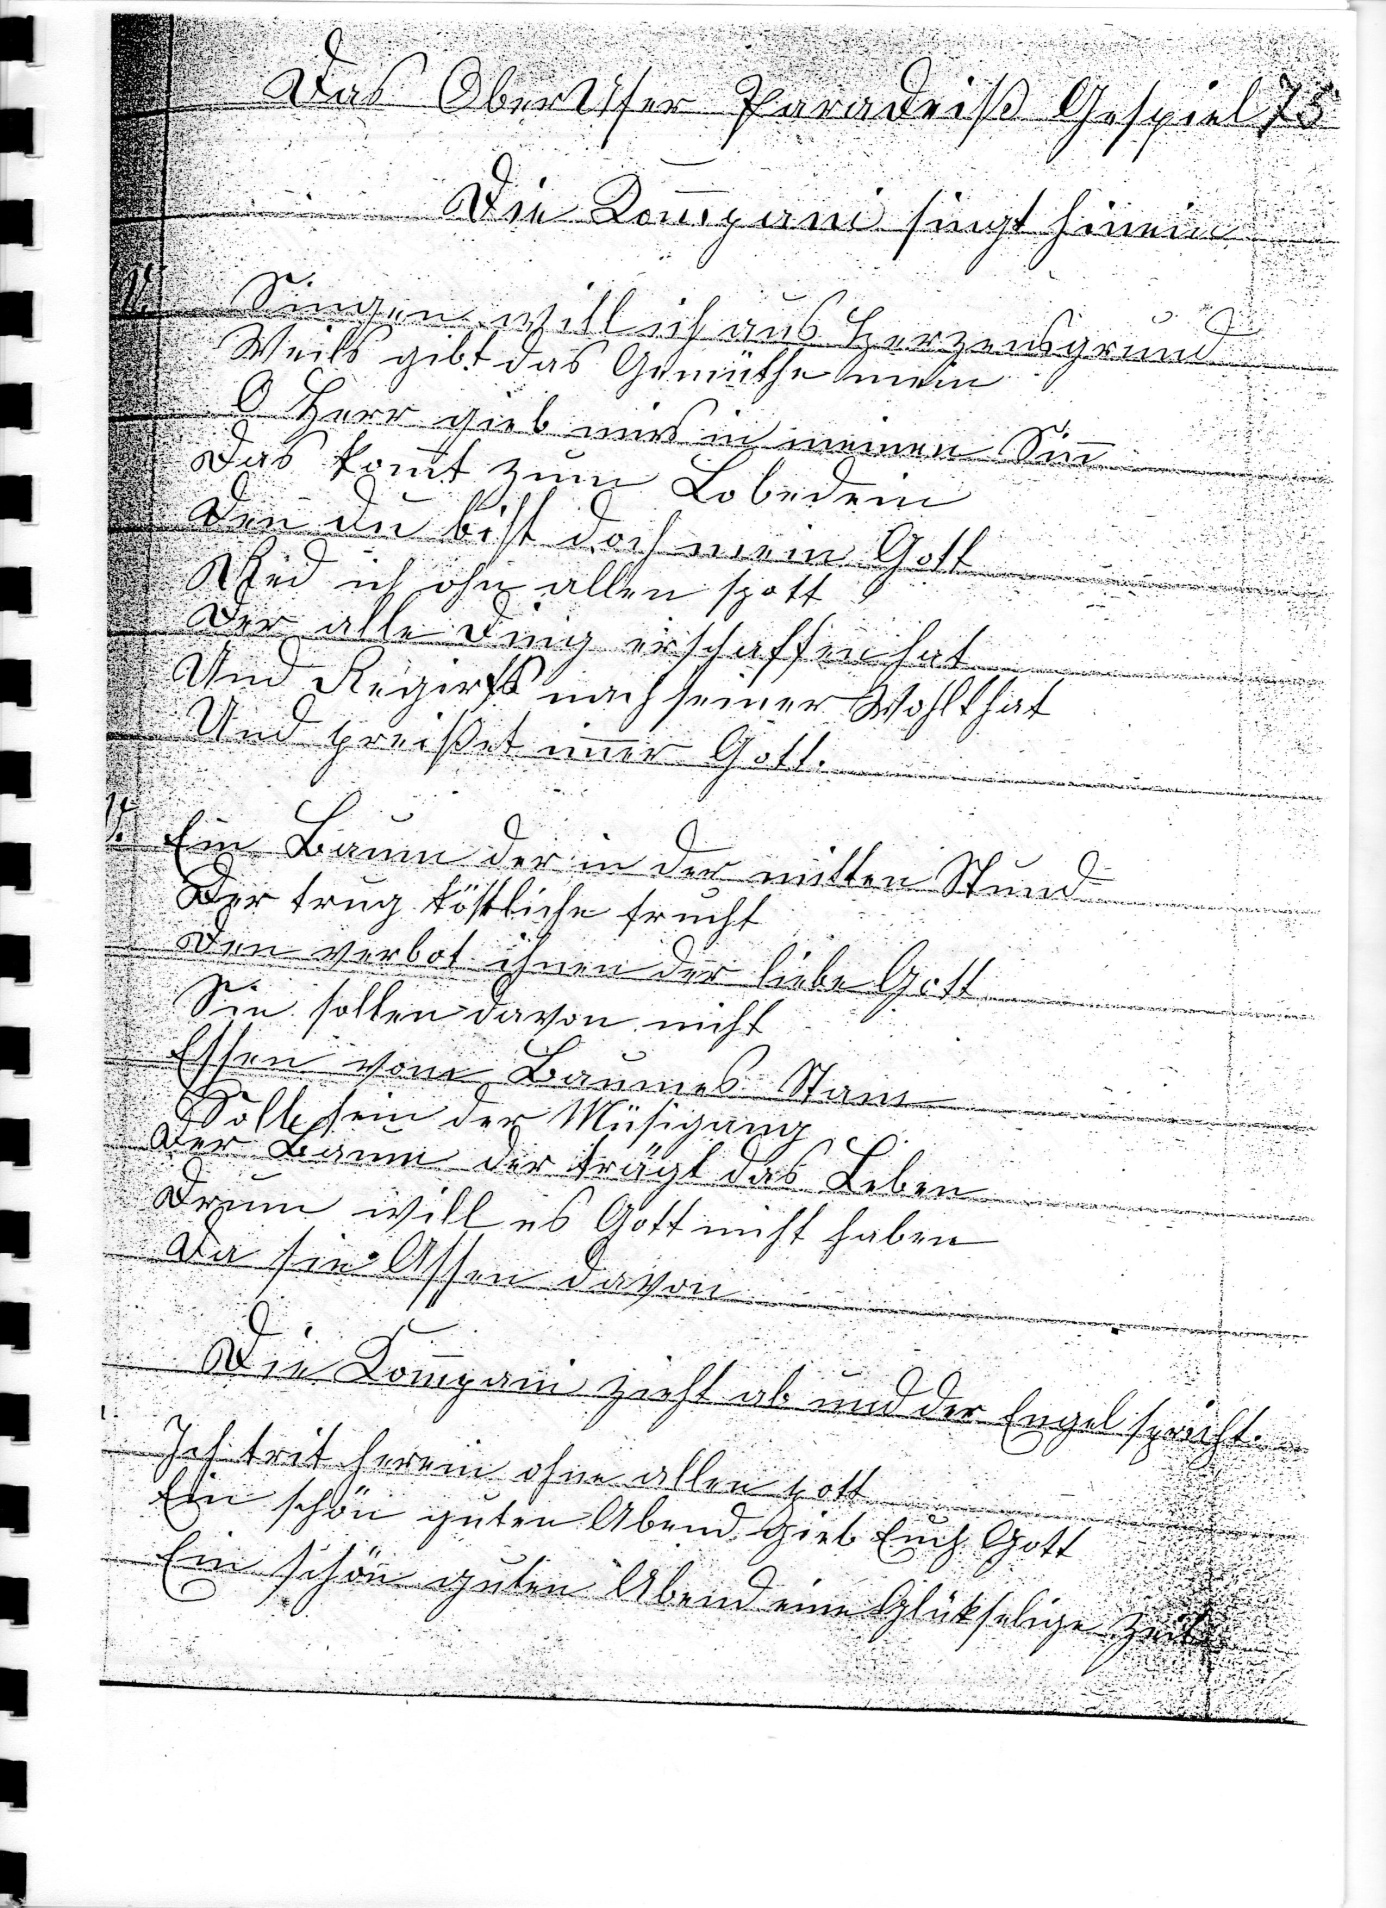 Das Oberufer Paradeiß Gespiel 75
Die Kom̅pani singt hinein
V. Singen will ich aus Herzensgrund
Weils gibt das Gemüthe mein
O Herr gieb mirs in meinen Sin̅
Das kom̅t zum Lobe dein
Den̅ du bist doch mein Gott
Red ich ohn allen spott
Der alle Ding erschaffen hat
Und Regirt nach seiner Wohlthat
Und preißet im̅er Gott.
V. Ein Baum der in der mitten Stund
Der trug köstliche frucht
Den verbot ihnen der liebe Gott
Sie sollen davon nicht
Essen vom Baumes Stam
Solle sein der Müsigang
Der Baum der trägt das Leben
Drum will es Gott nicht haben
Da sie Assen davon
Die Kom̅pani zieht ab und der Engel spricht.
Ich trit herein ohne allen spott
Ein schön guten Abend gieb Euch Gott
Ein schön guten Abend eine Glükselige Zeit